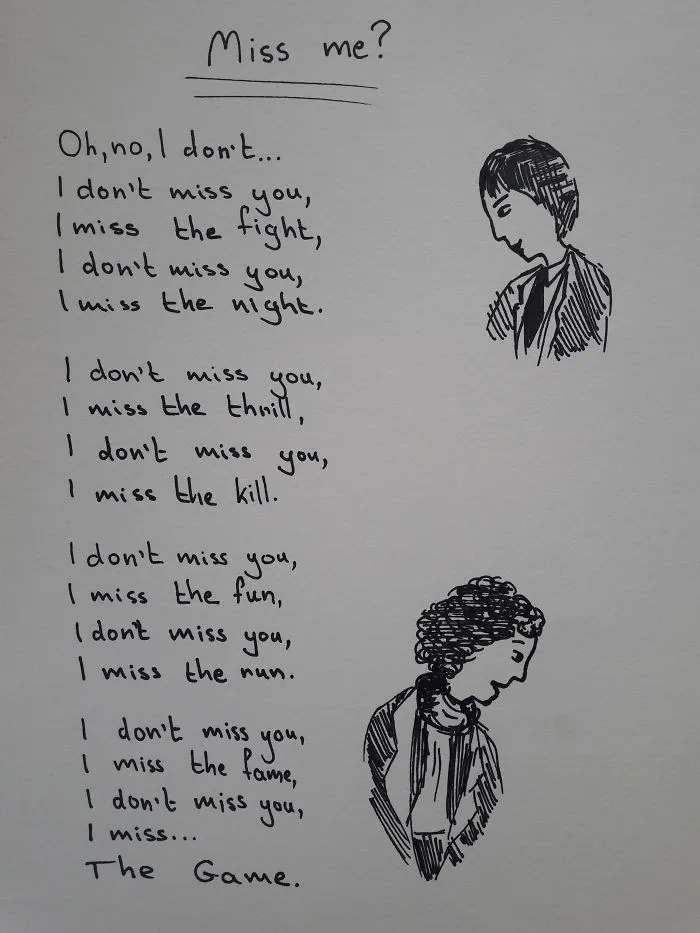 Miss me?
Oh, no, I don't...
I don't miss you,
I miss the fight,
I don't miss you,
I miss the night.
I don't miss you,
I miss the thrill,
I don't miss you,
I miss the kill.
I don't miss you,
I miss the fun,
I don't miss you,
I miss the run.
I don't miss you,
I miss the fame,
I don't miss you,
I miss...
The Game.